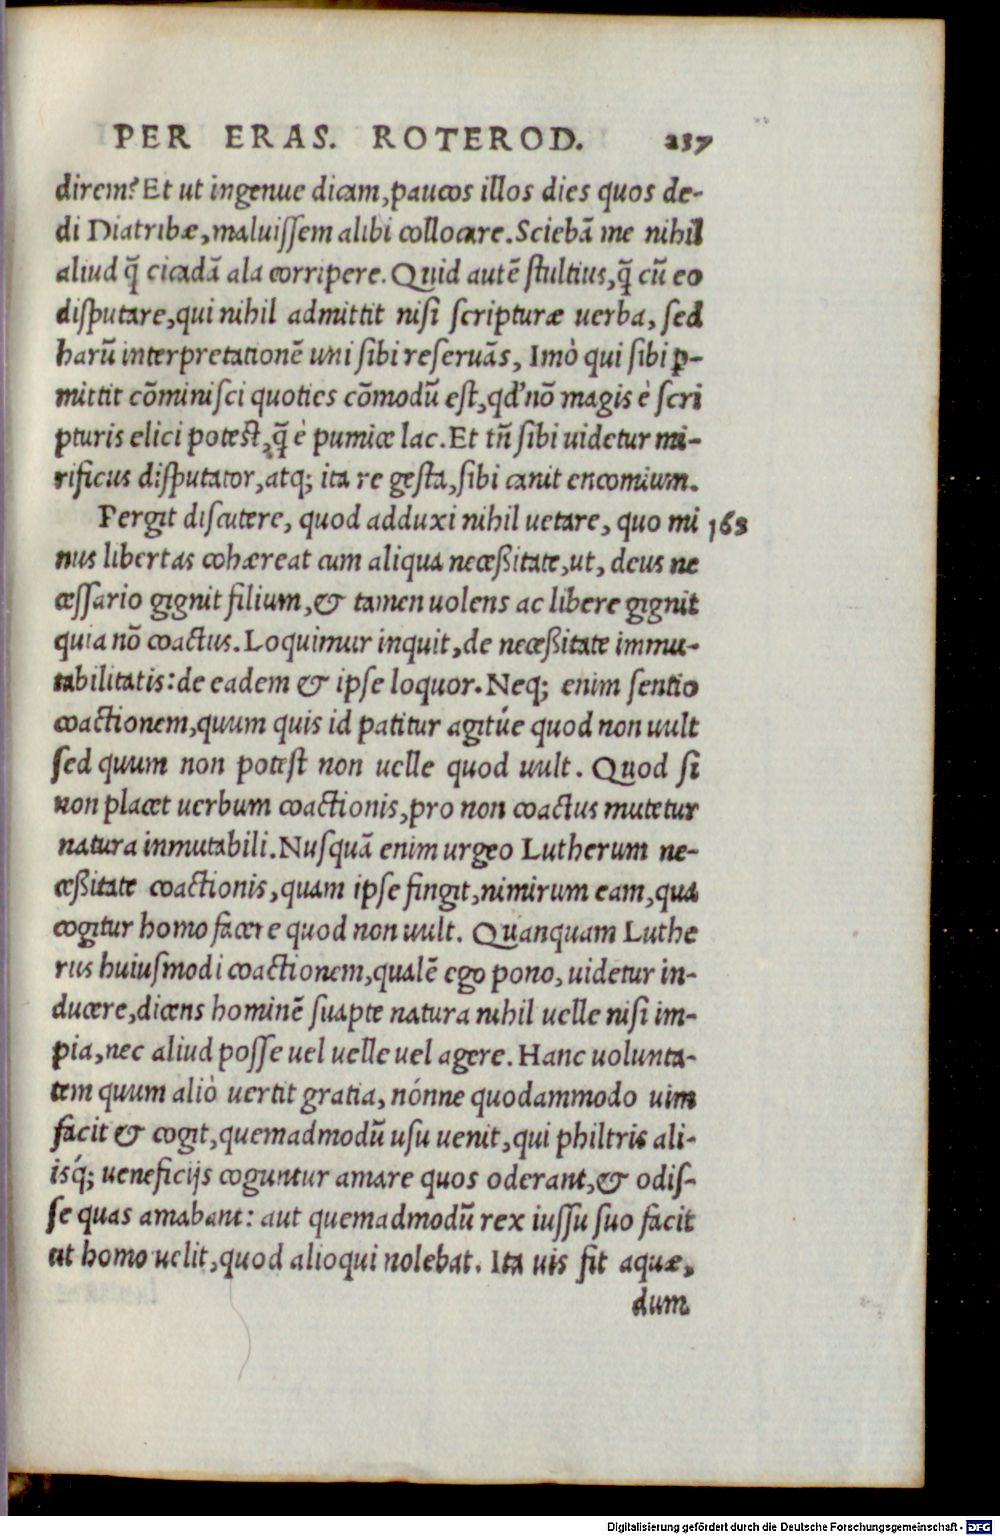 PER ERAS. ROTEROD. 237
direm? Et ut ingenue dicam, paucos illos dies quos de-
di Diatribæ, maluissem alibi collocare. Sciebã me nihil
aliud q̃ cicadã ala corripere. Quid autẽ stultius, q̃ cũ eo
disputare, qui nihil admittit nisi scripturæ uerba, sed
harũ interpretationẽ uni sibi reseruãs, Imò qui sibi p̱-
mittit cõminisci quoties cõmodũ est, qd' nõ magis è scri
pturis elici potest, q̃ è pumice lac. Et tñ sibi uidetur mi-
rificus disputator, atq; ita re gesta, sibi canit encomium.
Pergit discutere, quod adduxi nihil uetare, quo mi 163
nus libertas cohæreat cum aliqua neceßitate, ut, deus ne
cessario gignit filium, & tamen uolens ac libere gignit
quia nõ coactus. Loquimur inquit, de neceßitate immu-
tabilitatis: de eadem & ipse loquor. Neq; enim sentio
coactionem, quum quis id patitur agitúe quod non uult
sed quum non potest non uelle quod uult. Quod si
non placet uerbum coactionis, pro non coactus mutetur
natura inmutabili. Nusquã enim urgeo Lutherum ne-
ceßitate coactionis, quam ipse fingit, nimirum eam, qua
cogitur homo facere quod non uult. Quanquam Luthe
rus huiusmodi coactionem, qualẽ ego pono, uidetur in-
ducere, dicens hominẽ suapte natura nihil uelle nisi im-
pia, nec aliud posse uel uelle uel agere. Hanc uolunta-
tem quum aliò uertit gratia, nónne quodammodo uim
facit & cogit, quemadmodũ usu uenit, qui philtris ali-
isq́; ueneficijs coguntur amare quos oderant, & odis-
se quas amabant: aut quemadmodũ rex iussu suo facit
ut homo uelit, quod alioqui nolebat. Ita uis fit aquæ,
dum
Digitalisierung gefördert durch die Deutsche Forschungsgemeinschaft - DFG